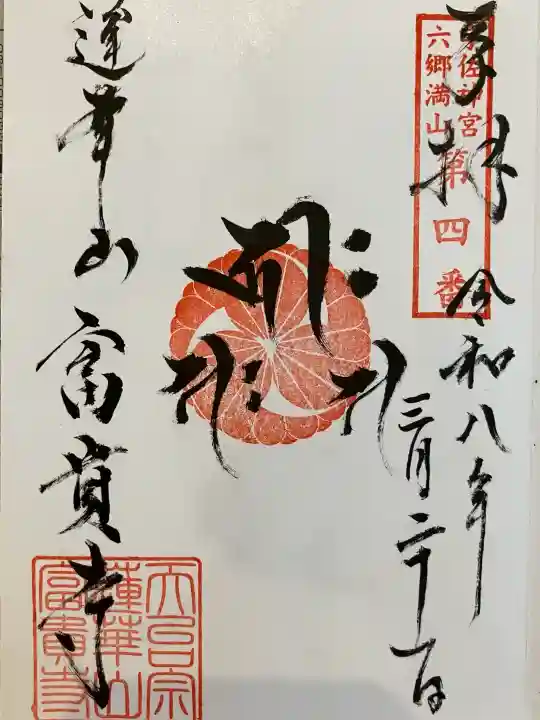 奉拝
宇佐神宮
六郷満山
第四番
令和八年
三月二十一日
蓮華山
富貴寺
天台宗
蓮華山
富貴寺